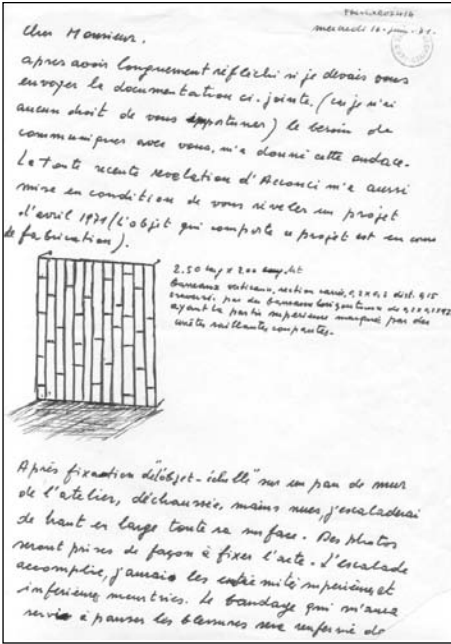 mercredi 16 juin 71.
Cher Monsieur.
après avoir longuement réfléchi si je devais vous
envoyer la documentation ci-jointe, (car je n'ai
aucun droit de vous opportuner) le besoin de
communiquer avec vous, m'a donné cette audace.
La toute recente revelation d'Acconci m'a aussi
mise en condition de vous révéler un projet
d'avril 1971 (l'objet qui comporte ce projet est en cours
de fabrication).
2.50 lrg x 200 ht
barreaux verticaux, section carrée, 0,2 x 0,2 dist.
par des barreaux horizontaux de
ayant la partie supérieure marquée par des
arêtes saillantes coupantes.
Après fixation de l'objet-échelle sur un pan de mur
de l'atelier, déchaussée, mains nues, j'escaladerai
de haut en large toute sa surface. Des photos
seront prises de façon à fixer l'acte. L'escalade
accomplie, j'aurai les extrémités supérieures et
inférieures meurtries. Le bandage qui m'aura
servi à panser les blessures sera renfermé de